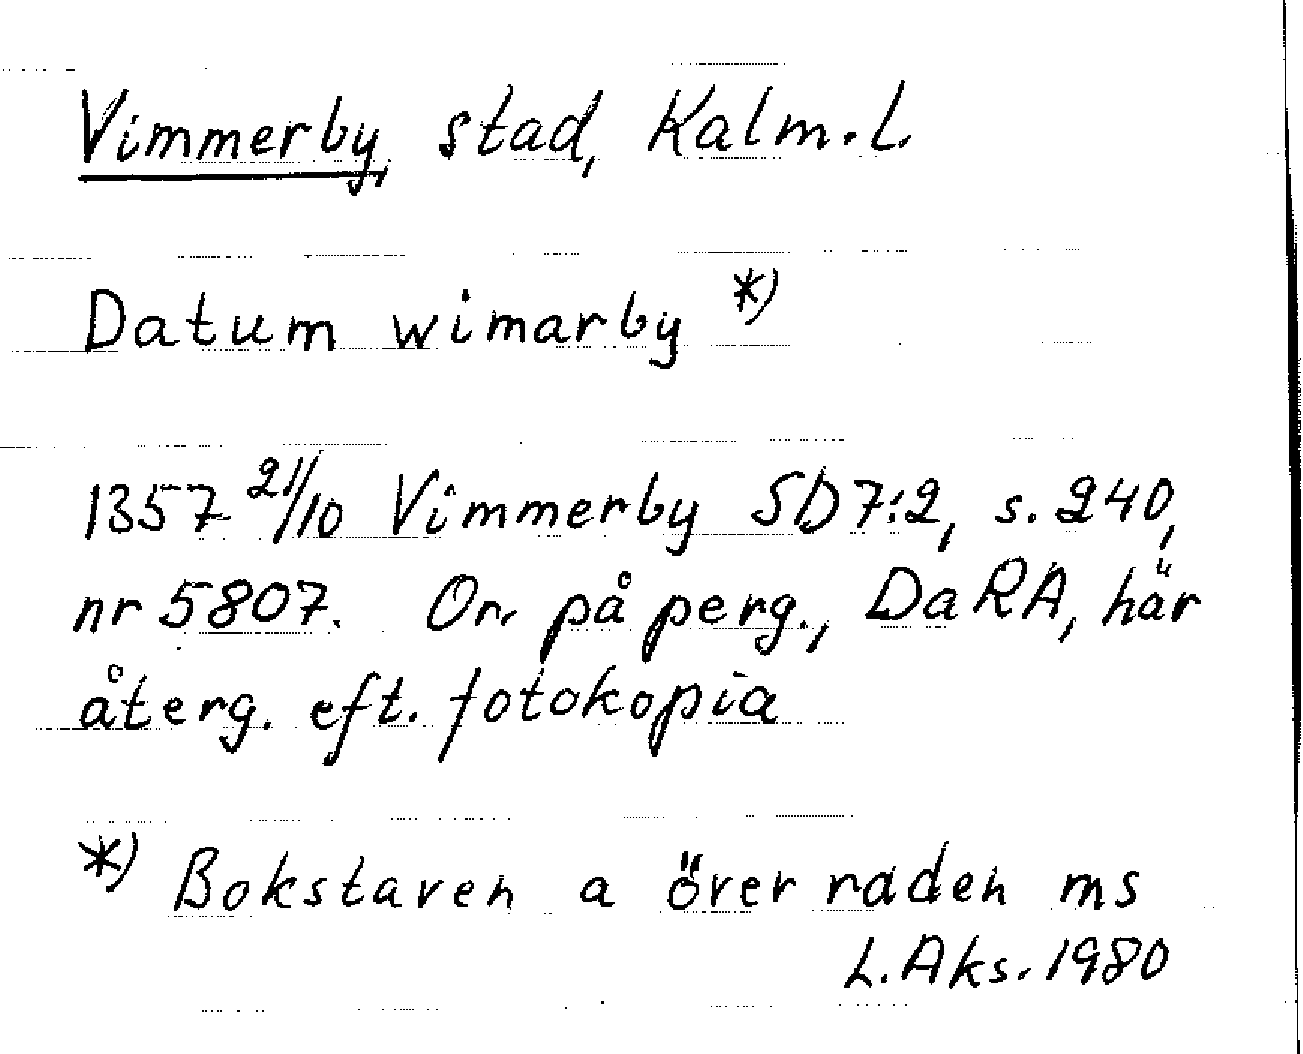 Vimmerby, stad, Kalm.L.
Datum wimarby *)
1357 21/10 Vimmerby SD 7:2, s. 240,
nr 5807. Or. på perg., DaRA, här
återg. eft. fotokopia
*) Bokstaven a över raden ms
L. Aks. 1980